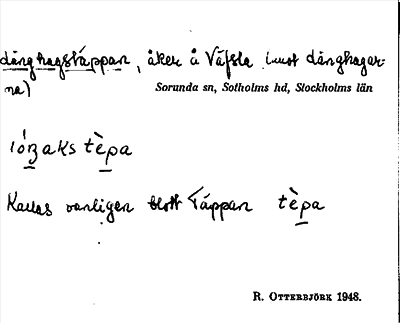 dånghagstäppan, åker å Väfsla (mot dånghagar-
na)
Sorunda sn, Sotholms hd, Stockholms län
tèpa
Kallas vanligen blott Täppan tèpa
R. OTTERBJÖRK 1948.